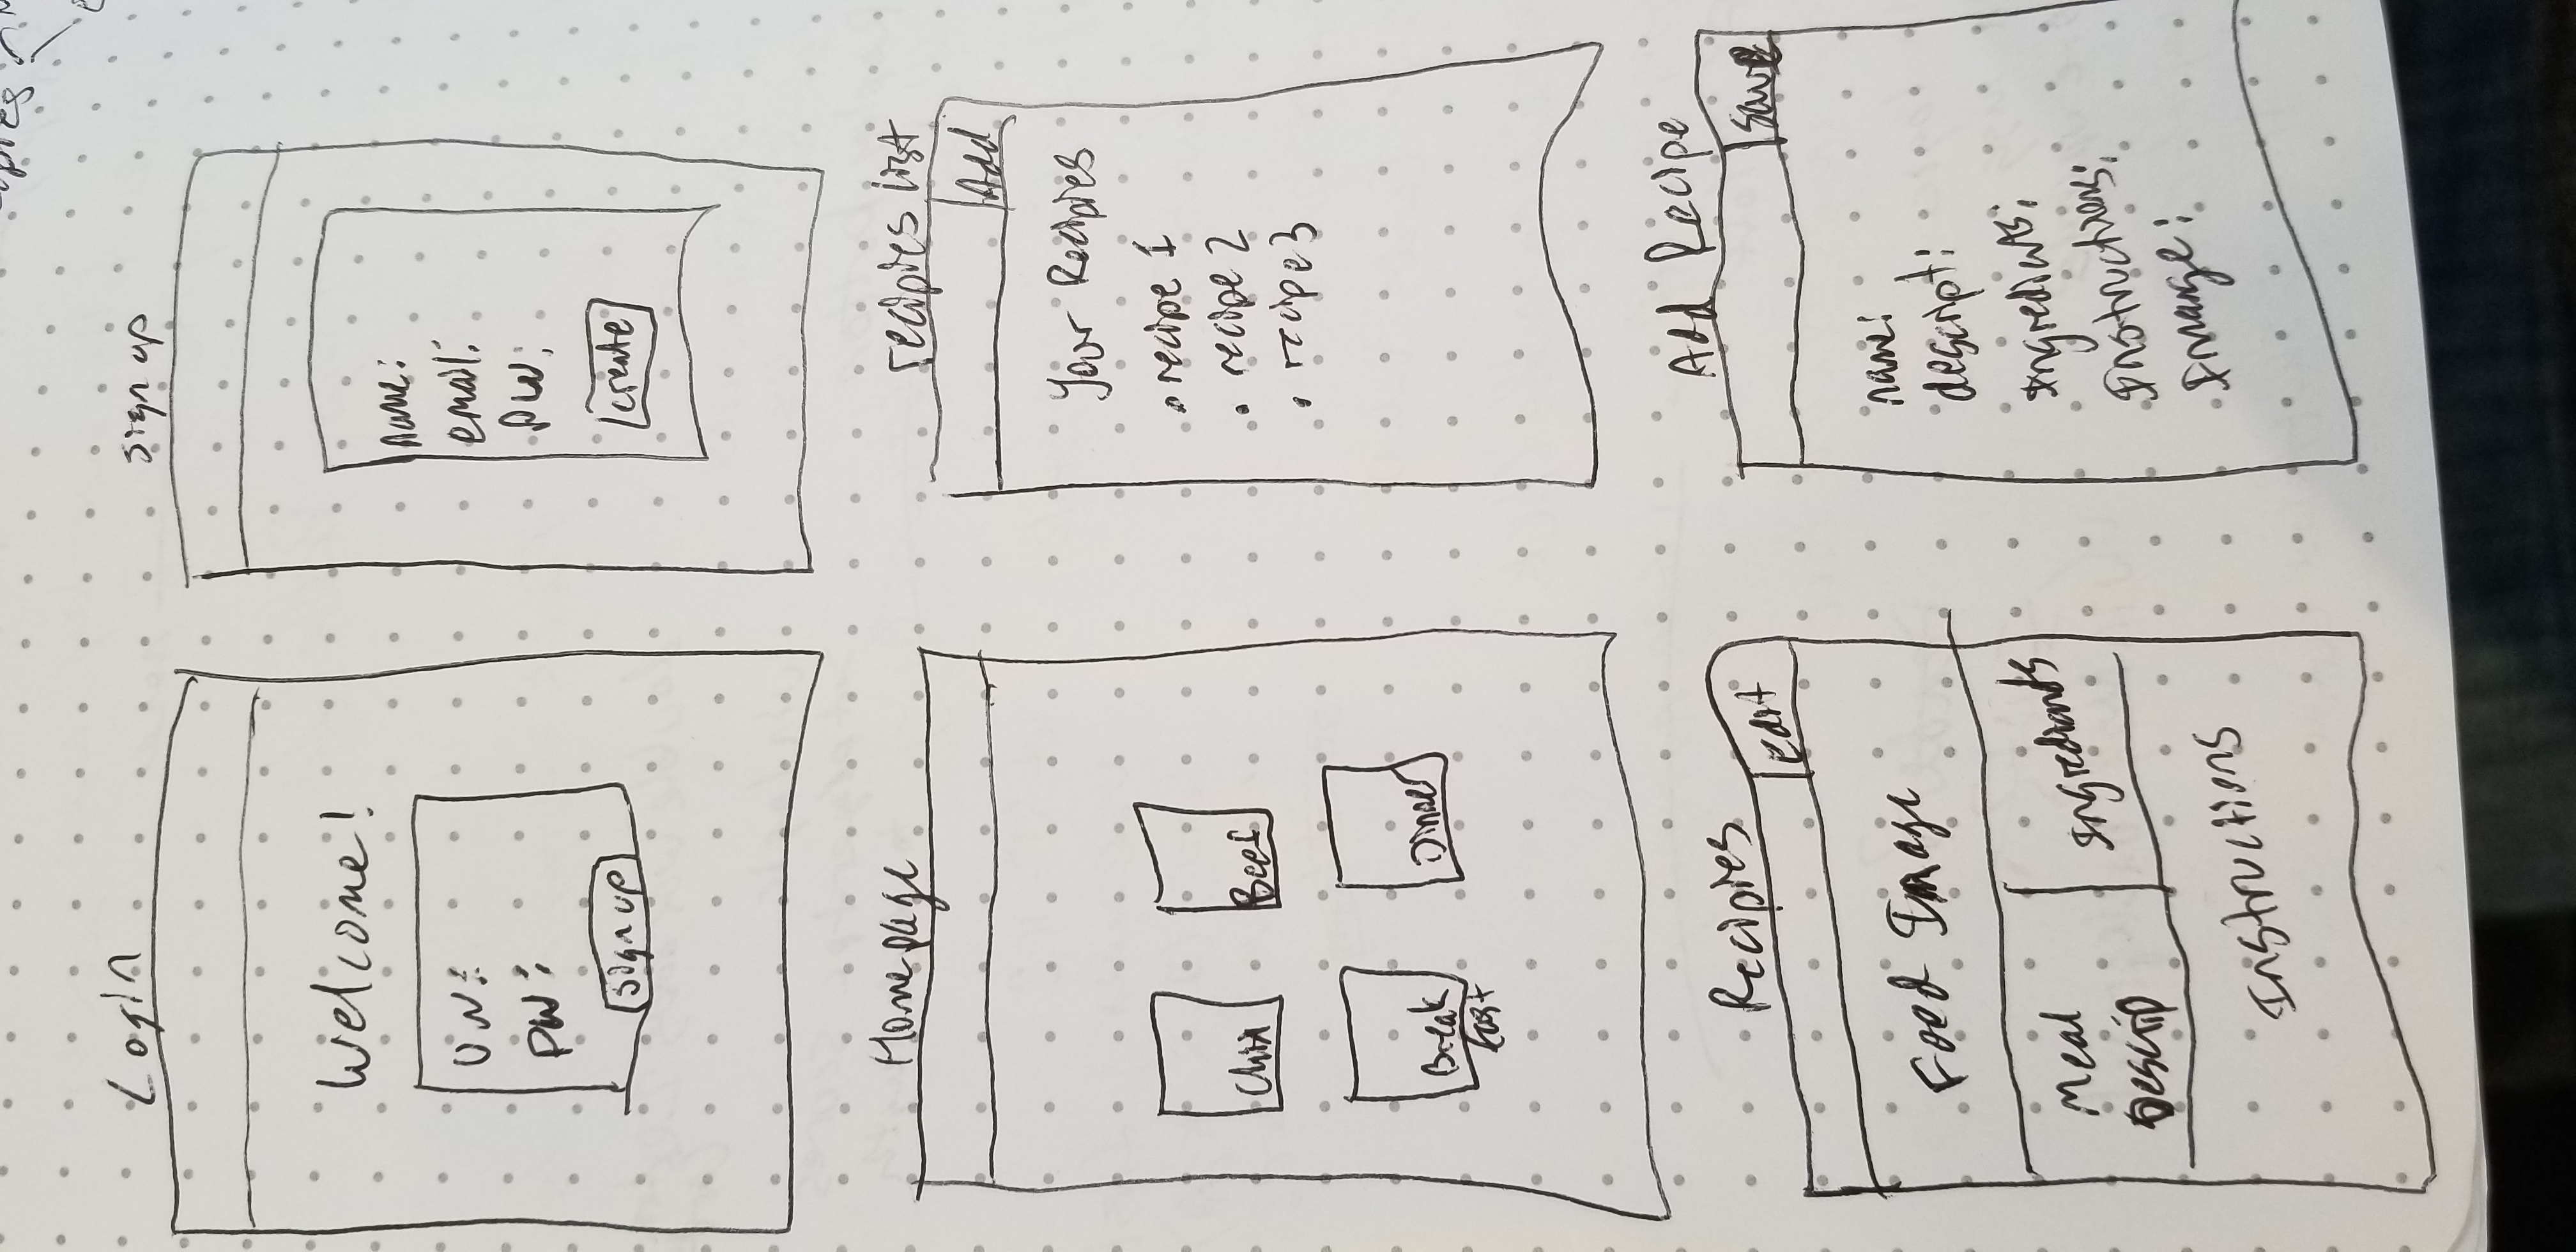 Login
Welcome!
UN:
PW:
sign up
sign up
name:
email:
PW:
create
Homepage
Beef
Break
fast
Dinner
recipies list
Add
Your Recipies
• recipe 1
• recipe 2
• recipe 3
Recipies
edit
Food Image
Meal
Descrip
Ingrediants
Instructions
Add Recipe
Save
name:
descript:
Ingredients:
Instructions:
Image: